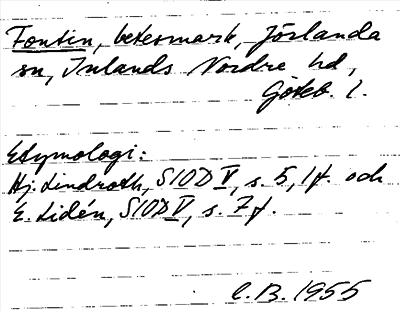 Fontin, betesmark, Jörlanda
sn, Inlands Nordre hd,
Göteb. l.
Etymologi:
Hj. Lindroth, SIOD V, s. 5, 1f. och
E. Lidén, SIOD V, s. 7f.
C.B. 1955